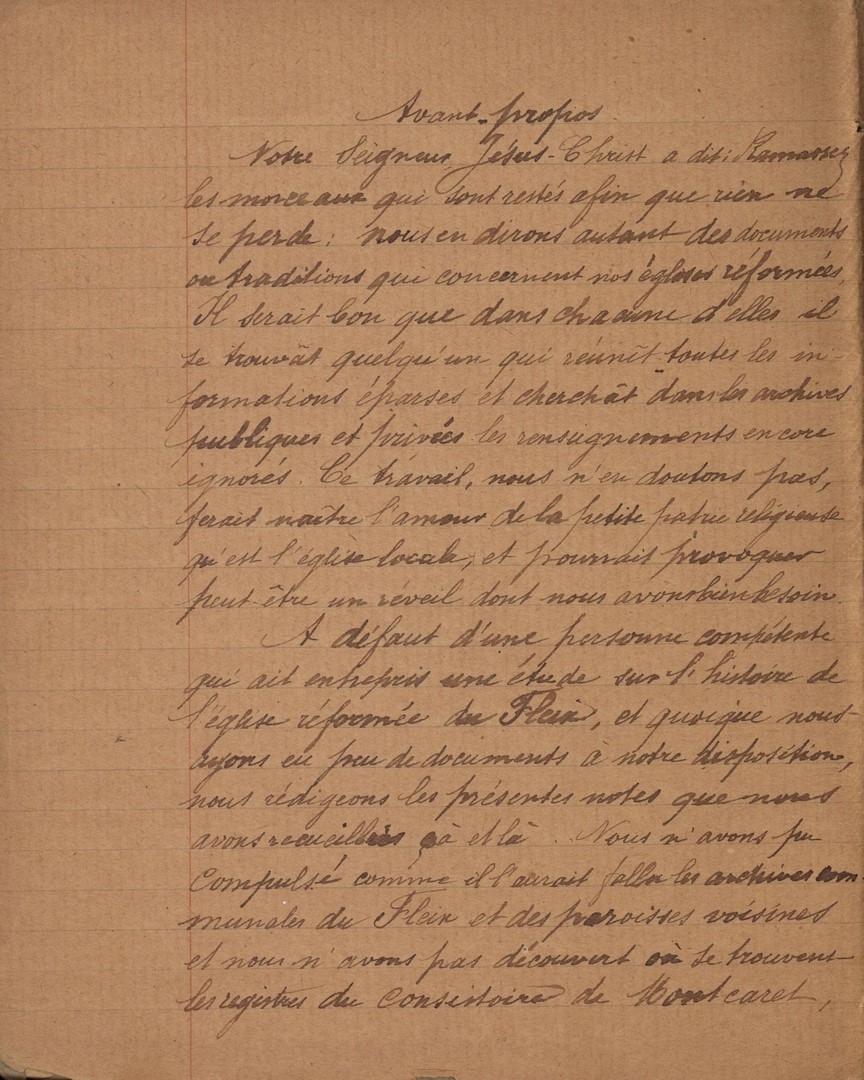 Avant-propos.
Notre Seigneur Jésus-Christ a dit: Ramassez
les morceaux qui sont restés afin que rien ne
se perde: nous en dirons autant des documents
ou traditions qui concernent nos églises réformées.
Il serait bon que dans chacune d'elles il
se trouvât quelqu'un qui réunît toutes les in-
formations éparses et cherchât dans les archives
publiques et privées les renseignements encore
ignorés. Ce travail, nous n'en doutons pas,
ferait naître l'amour de la petite patrie religieuse
qu'est l'église locale, et pourrait provoquer
peut-être un réveil dont nous avons bien besoin.
A défaut d'une personne compétente
qui ait entrepris une étude sur l'histoire de
l'église réformée du Fleix, et quoique nous
ayons eu peu de documents à notre disposition,
nous rédigeons les présentes notes que nous
avons recueillies çà et là. Nous n'avons pu
compulsé comme il l'aurait fallu les archives com-
munales du Fleix et des paroisses voisines
et nous n'avons pas découvert où se trouvent
les registres du Consistoire de Montcaret,